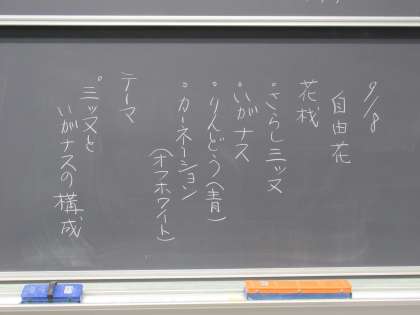 9/8
自由花
花材
・さらし三ツ又
・いがナス
・りんどう(青)
・カーネーション
(オフホワイト)
テーマ
・三ツ又と
いがナスの構成